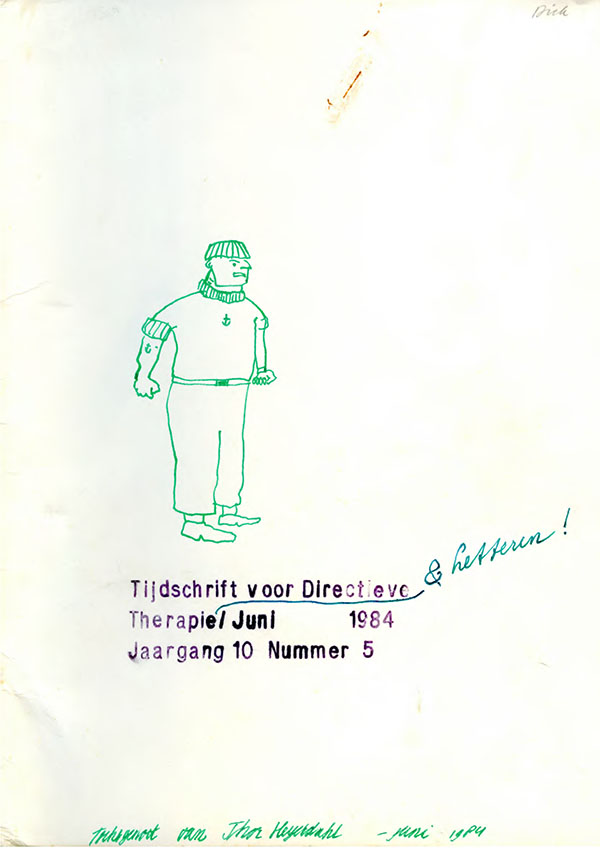 Dick
& Letteren!
Tijdschrift voor Directieve
Therapie/Juni 1984
Jaargang 10 Nummer 5
Tochtgenoot van Thor Heyerdahl - juni 1984